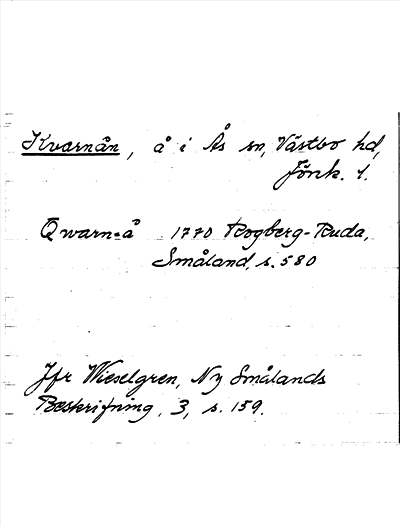 Kvarnån, å i Ås sn, Västbo hd,
Jönk. l.
Qwarn-å 1770 Rogberg-Ruda,
Småland, s. 580
Jfr Wieselgren, Ny Smålands
Beskrifning, 3, s. 159.